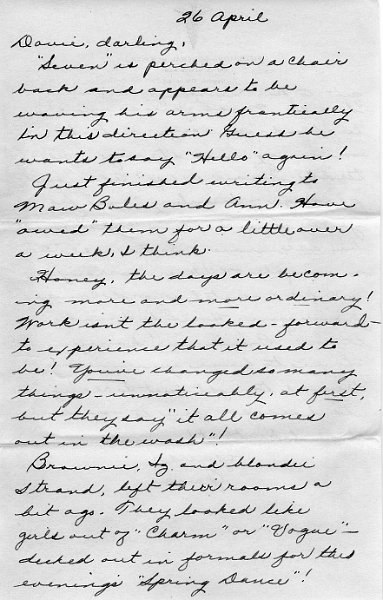 26 April
Dovie, darling,
"Seven" is perched on a chair
back and appears to be
waving his arms frantically
in this direction Guess he
wants to say "Hello" again!
Just finished writing to
Maw Bules and Ann. Have
"owed" them for a little over
a week, I think.
Honey, the days are becom-
ing more and more ordinary!
Work isn't the looked-forward-
to experience that it used to
be! You've changed so many
things - unnoticeably, at first,
but they say "it all comes
out in the wash"!
Brownie, Iz and blondie
Strand, left their rooms a
bit ago. They looked like
girls out of "Charm" or "Vogue" -
decked out in formals for this
evening's "Spring Dance"!